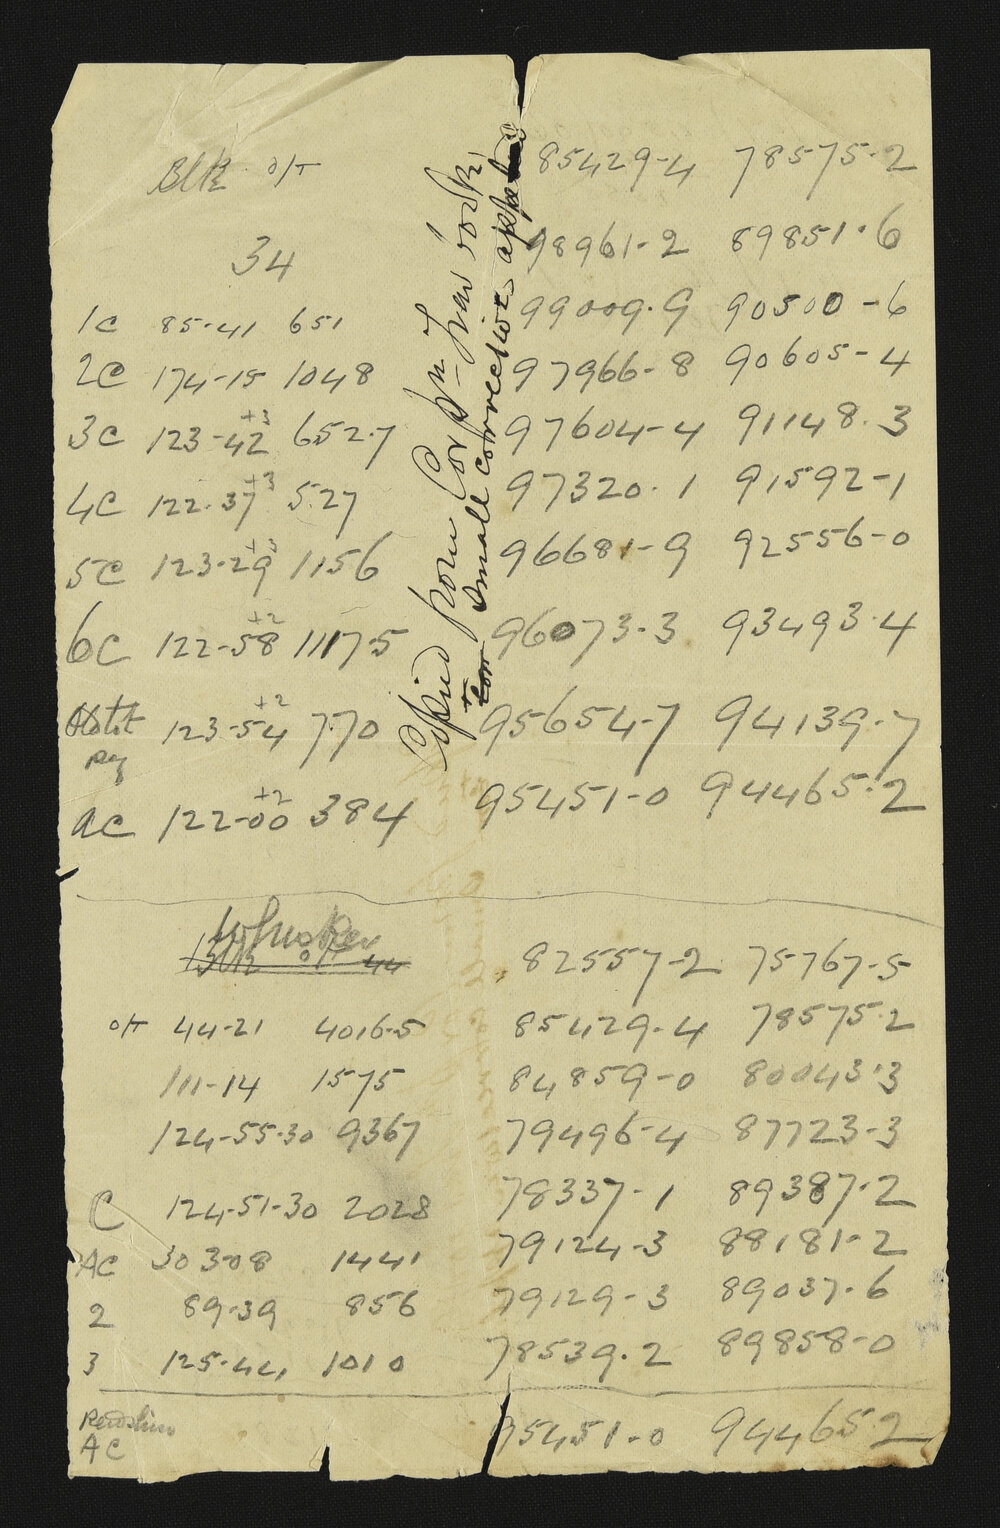 Blk o/T 85429-4 78575.2
34 98961-2 89851.6
1C 85-41 651 99009.9 90500-6
2C 174-15 1048 97966-8 90605-4
3C 123-42 +3 652.7 97604-4 91148.3
4C 122.37 +3 5.27 97320.1 91592-1
5C 123-29 +3 1156 96681-9 92556-0
6C 122-58 +2 1117.5 96073-3 93493.4
123-54 +2 770 95654-7 94139.7
AC 122-00 +2 384 95451-0 94465.2
Copied from Corpn - hair work
small corrections applied
82557-2 75767-5
o/T 44-21 4016.5 85429.4 78575.2
111-14 1575 84859-0 80043.3
124-55-30 9367 79496-4 87723-3
C 124-51-30 2028 78337-1 89387.2
AC 303-08 1441 79124-3 88181-2
2 89-39 856 79129-3 89037.6
3 125-44 1010 78539.2 89858-0
AC 95451-0 94465 2